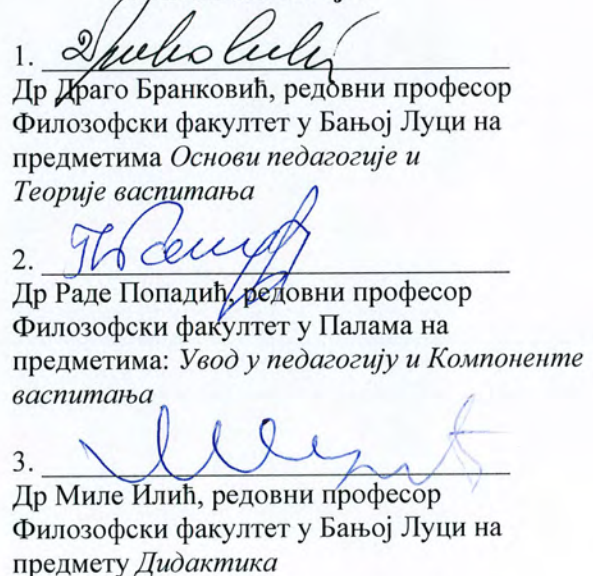 1.
Др Драго Бранковић, редовни професор
Филозофски факултет у Бањој Луци на
предметима Основи педагогије и
Теорије васпитања
2.
Др Раде Попадић, редовни професор
Филозофски факултет у Палама на
предметима: Увод у педагогију и Компоненте
васпитања
3.
Др Миле Илић, редовни професор
Филозофски факултет у Бањој Луци на
предмету Дидактика